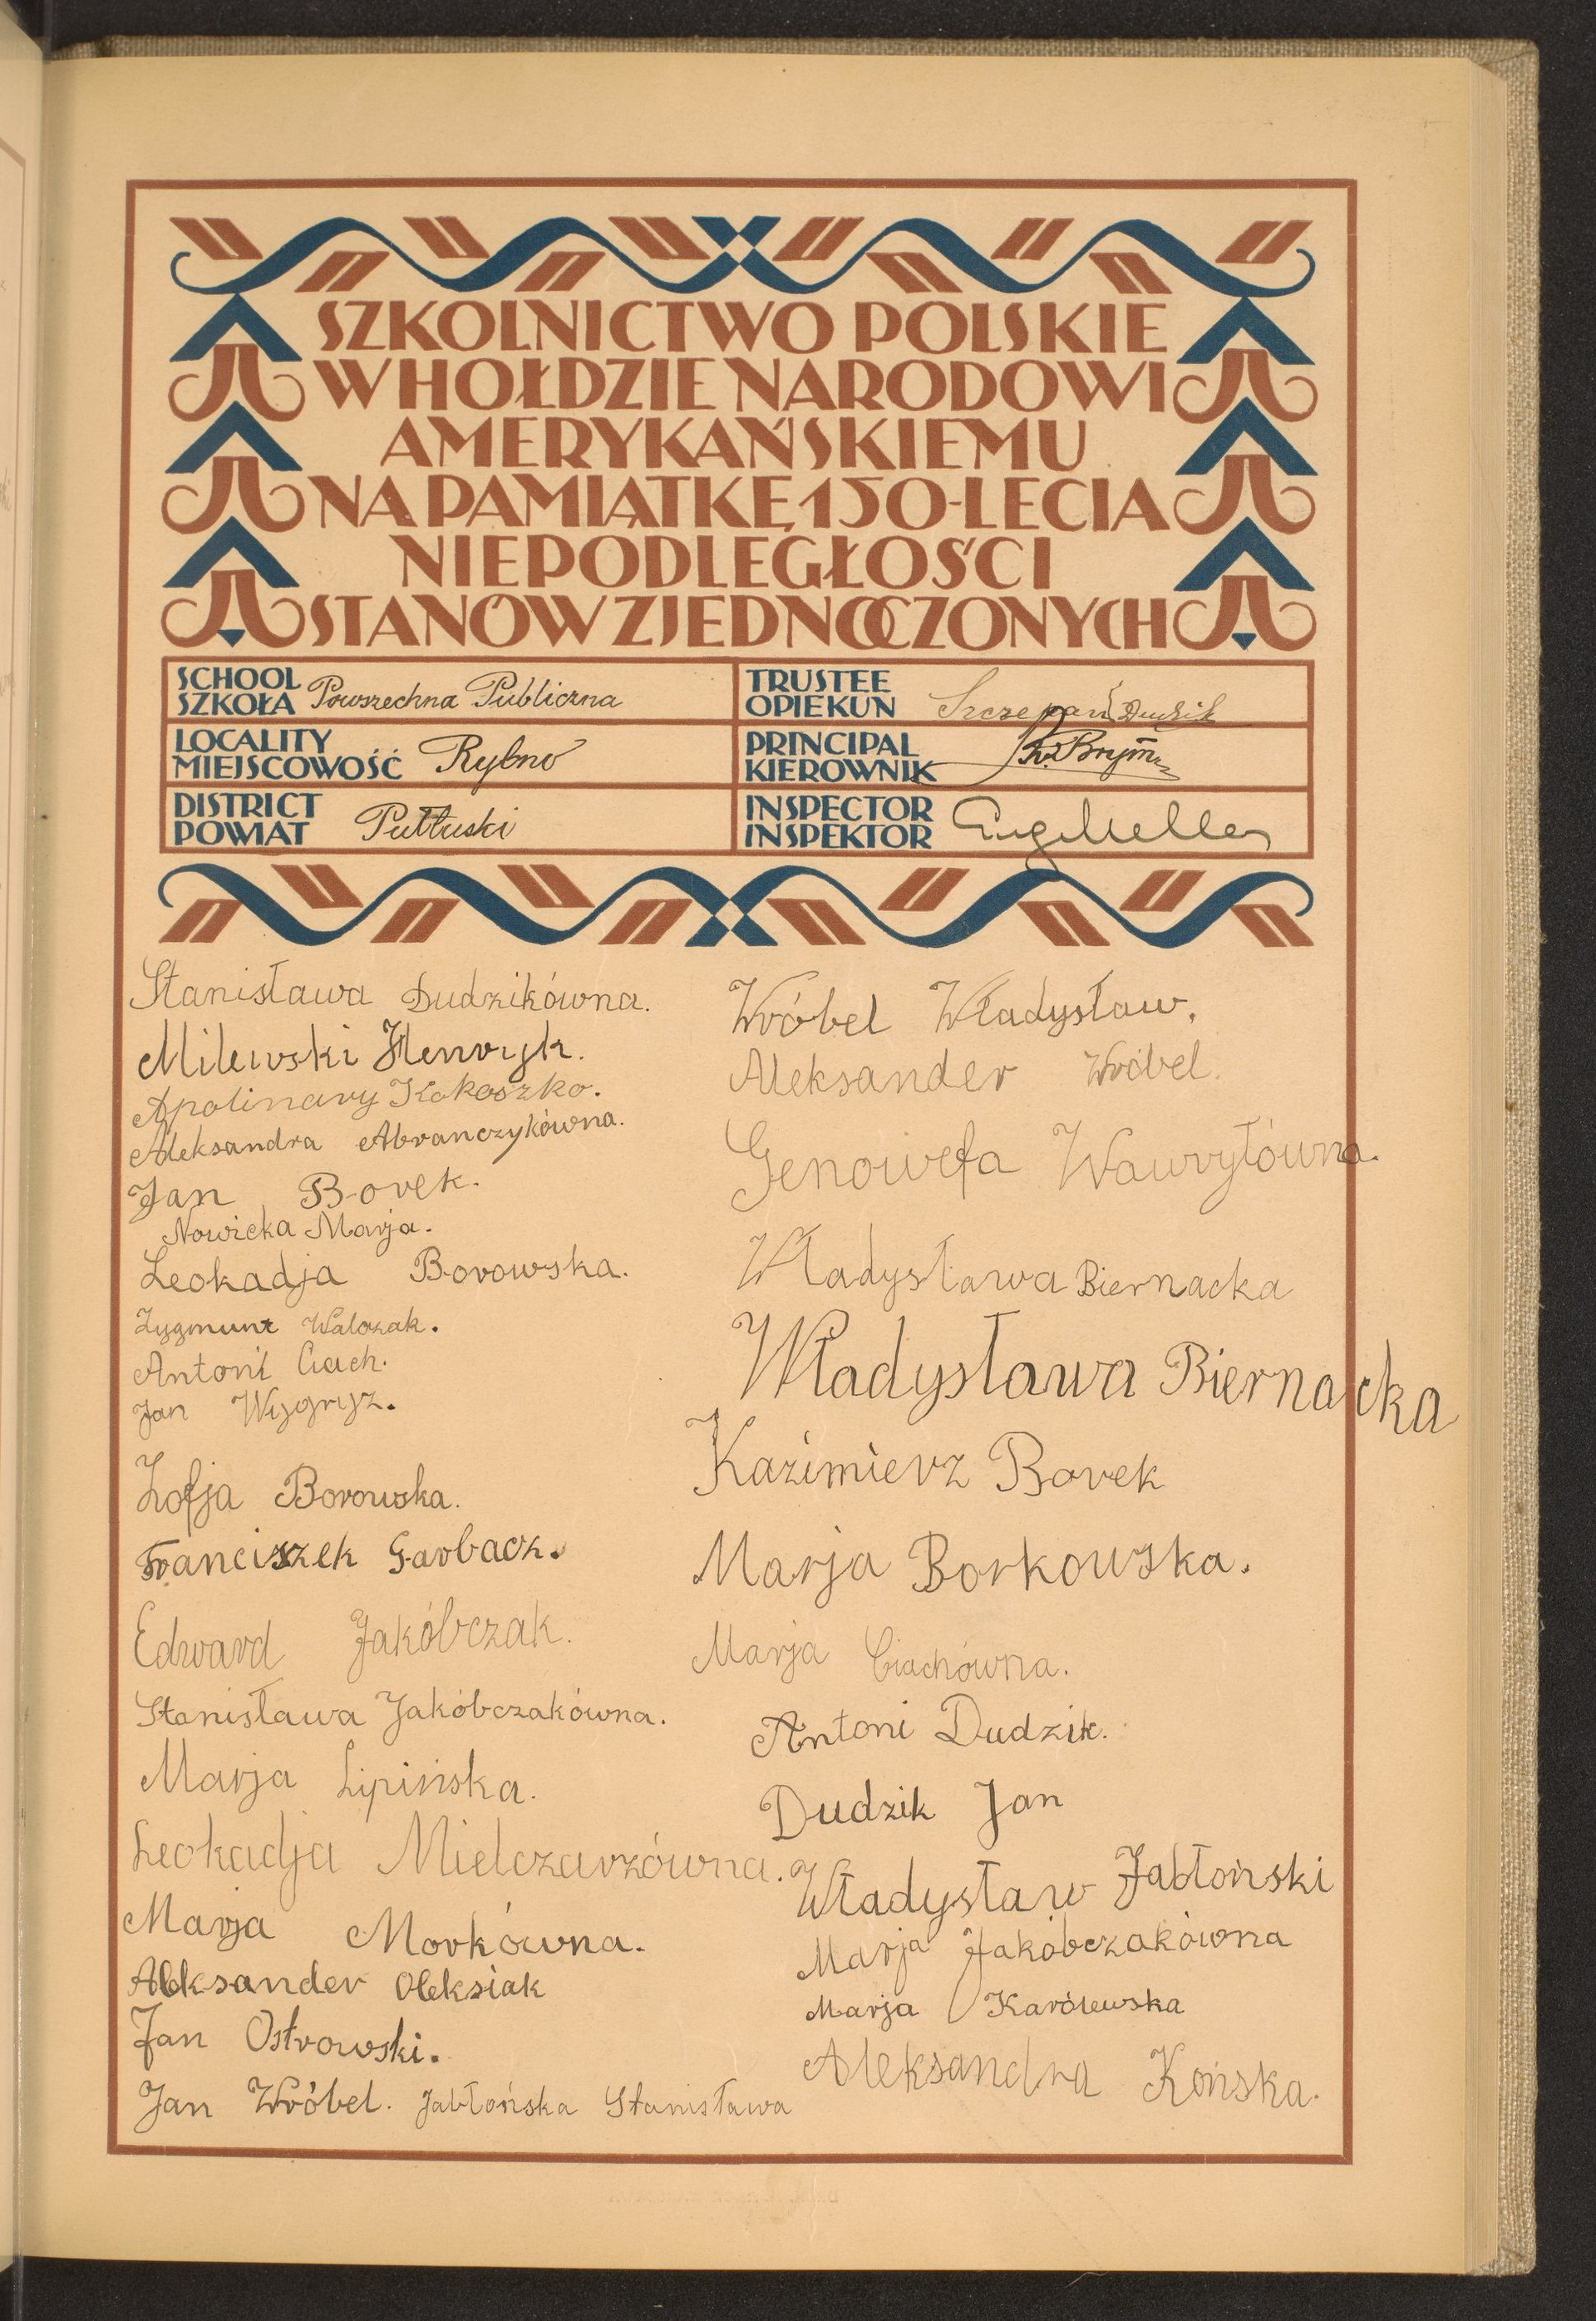 SZKOLNICTWO POLSKIE
W HOŁDZIE NARODOWI
AMERYKAŃSKIEMU
NA PAMIĄTKĘ 150-LECIA
NIEPODLEGŁOŚCI
STANÓW ZJEDNOCZONYCH
SCHOOL
SZKOŁA Powszechna Publiczna
LOCALITY
MIEJSCOWOŚĆ Rybno
DISTRICT
POWIAT Pułtuski
TRUSTEE
OPIEKUN Szczepan Dudzik
PRINCIPAL
KIEROWNIK
INSPECTOR
INSPEKTOR
Stanisława Dudzikówna.
Milewski Henryk.
Apolinary Kokoszko.
Aleksandra Abranczykówna.
Jan Borek.
Nowicka Marja.
Leokadja Borowska.
Zygmunt Walczak.
Antoni Ciach.
Jan Wygryz.
Zofja Borowska.
Franciszek Garbacz.
Edward Jakóbczak.
Stanisława Jakóbczakówna.
Marja Lipińska.
Leokadja Mielczarzówna.
Marja Morkówna.
Aleksander Oleksiak
Jan Ostrowski.
Jan Wróbel. Jabłońska Stanisława
Wróbel Władysław.
Aleksander Wróbel.
Genowefa Wawryłówna.
Władysława Biernacka
Władysława Biernacka
Kazimierz Borek
Marja Borkowska.
Marja Ciachówna.
Antoni Dudzik.
Dudzik Jan
Władysław Jabłoński
Marja Jakóbczakówna
Marja Karólewska
Aleksandra Końska.